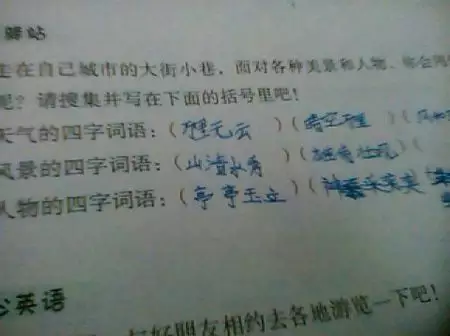 驿站
走在自己城市的大街小巷，面对各种美景和人物，你会用
呢？请搜集并写在下面的括号里吧！
天气的四字词语：（ 无云 ）（ 晴空万里 ）（
风景的四字词语：（ 山清水秀 ）（ ）（
人物的四字词语：（ 亭亭玉立 ）（
心英语
好朋友相约去各地游览一下吧！